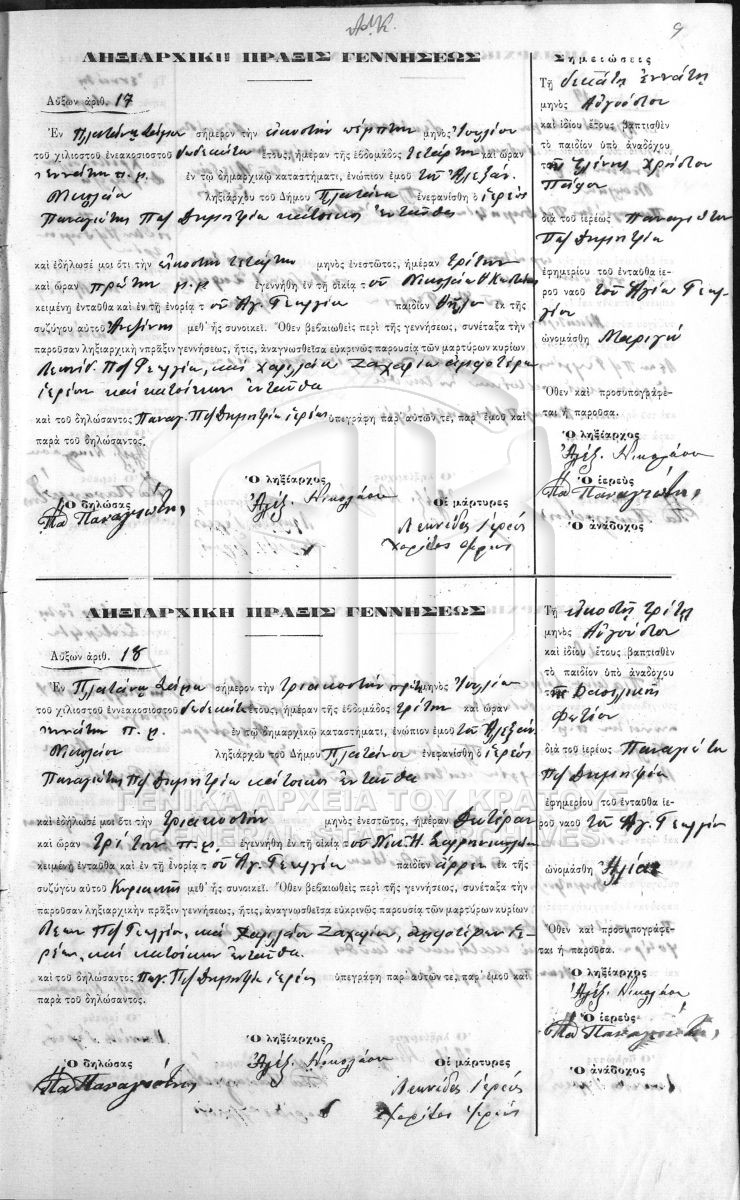 9
ΛΗΞΙΑΡΧΙΚΗ ΠΡΑΞΙΣ ΓΕΝΝΗΣΕΩΣ
Αὔξων ἀριθ. 17
Ἐν Πλατάνῳ σήμερον τὴν εἰκοστὴν πέμπτην μηνὸς Ἰουλίου
τοῦ χιλιοστοῦ ἐνεακοσιοστοῦ δωδεκάτου ἔτους, ἡμέραν τῆς ἑβδομάδος τετάρτην καὶ ὥραν
ἐννάτην π. μ. ἐν τῷ δημαρχικῷ καταστήματι, ἐνώπιον ἐμοῦ τοῦ Ἀλεξάν.
Νικολάου ληξιάρχου τοῦ Δήμου Πλατάνου ἐνεφανίσθη ὁ ἱερεὺς
Παναγιώτης Παπ Δημητρίου κάτοικος ἐνταῦθα
καὶ ἐδήλωσέ μοι ὅτι τὴν εἰκοστὴν τετάρτην μηνὸς ἐνεστῶτος, ἡμέραν τρίτην
καὶ ὥραν πρώτην μ.μ. ἐγεννήθη ἐν τῇ οἰκίᾳ τοῦ Νικολάου
κειμένῃ ἐνταῦθα καὶ ἐν τῇ ἐνορίᾳ τοῦ Ἁγ. Γεωργίου παιδίον θῆλυ ἐκ τῆς
συζύγου αὐτοῦ μεθ᾽ ἧς συνοικεῖ. Ὅθεν βεβαιωθεὶς περὶ τῆς γεννήσεως, συνέταξα τὴν
παροῦσαν ληξιαρχικὴν πρᾶξιν γεννήσεως, ἥτις, ἀναγνωσθεῖσα εὐκρινῶς παρουσίᾳ τῶν μαρτύρων κυρίων
Λεωνίδ. Παπ Γεωργίου, καὶ Χαριλάου Ζαχαρίου ἀμφοτέρων
ἱερέων καὶ κατοίκων ἐνταῦθα
καὶ τοῦ δηλώσαντος Παναγ. Παπ Δημητρίου ἱερέως ὑπεγράφη παρ᾽ αὐτῶν τε, παρ᾽ ἐμοῦ καὶ
παρὰ τοῦ δηλώσαντος.
Ὁ δηλώσας
Πα Παναγιώτης
Ὁ ληξίαρχος
Ἀλέξ. Νικολάου
Οἱ μάρτυρες
Λεωνίδας Ἱερεύς
Σημειώσεις
Τῇ δεκάτῃ ἐννάτῃ
μηνὸς Αὐγούστου
καὶ ἰδίου ἔτους βαπτισθὲν
τὸ παιδίον ὑπὸ ἀναδόχου
τῆς Ἑλένης Χρήστου
διὰ τοῦ ἱερέως Παναγιώτου
Παπ Δημητρίου
ἐφημερίου τοῦ ἐνταῦθα ἱε-
ροῦ ναοῦ τοῦ Ἁγίου Γεωρ-
γίου
ὠνομάσθη Μαριγώ
Ὅθεν καὶ προσυπογράφε-
ται ἡ παροῦσα.
Ὁ ληξίαρχος
Ἀλέξ. Νικολάου
Ὁ ἱερεὺς
Πα Παναγιώτης
Ὁ ἀνάδοχος
ΛΗΞΙΑΡΧΙΚΗ ΠΡΑΞΙΣ ΓΕΝΝΗΣΕΩΣ
Αὔξων ἀριθ. 18
Ἐν Πλατάνῳ σήμερον τὴν τριακοστὴν πρώτ. μηνὸς Ἰουλίου
τοῦ χιλιοστοῦ ἐννεακοσιοστοῦ δωδεκάτ ἔτους, ἡμέραν τῆς ἑβδομάδος τρίτην καὶ ὥραν
ἐννάτην π. μ. ἐν τῷ δημαρχικῷ καταστήματι, ἐνώπιον ἐμοῦ τοῦ Ἀλεξάν.
Νικολάου ληξιάρχου τοῦ Δήμου Πλατάνου ἐνεφανίσθη ὁ ἱερεὺς
Παναγιώτης Παπ Δημητρίου κάτοικος ἐνταῦθα
καὶ ἐδήλωσέ μοι ὅτι τὴν τριακοστὴν μηνὸς ἐνεστῶτος, ἡμέραν Δευτέραν
καὶ ὥραν τρίτην π.μ. ἐγεννήθη ἐν τῇ οἰκίᾳ τοῦ Νικ. Η.
κειμένῃ ἐνταῦθα καὶ ἐν τῇ ἐνορίᾳ τοῦ Ἁγ. Γεωργίου παιδίον ἄρρεν ἐκ τῆς
συζύγου αὐτοῦ Κυριακῆς μεθ᾽ ἧς συνοικεῖ. Ὅθεν βεβαιωθεὶς περὶ τῆς γεννήσεως, συνέταξα τὴν
παροῦσαν ληξιαρχικὴν πρᾶξιν γεννήσεως, ἥτις, ἀναγνωσθεῖσα εὐκρινῶς παρουσίᾳ τῶν μαρτύρων κυρίων
Λεων Παπ Γεωργίου, καὶ Χαριλάου Ζαχαρίου, ἀμφοτέρων ἱε-
ρέων, καὶ κατοίκων ἐνταῦθα
καὶ τοῦ δηλώσαντος Παν. Παπ Δημητρίου ἱερέως ὑπεγράφη παρ᾽ αὐτῶν τε, παρ᾽ ἐμοῦ καὶ
παρὰ τοῦ δηλώσαντος.
Ὁ δηλώσας
Πα Παναγιώτης
Ὁ ληξίαρχος
Ἀλέξ. Νικολάου
Οἱ μάρτυρες
Λεωνίδας Ἱερεύς
Τῇ εἰκοστῇ τρίτῃ
μηνὸς Αὐγούστου
καὶ ἰδίου ἔτους βαπτισθὲν
τὸ παιδίον ὑπὸ ἀναδόχου
τῆς Βασιλικῆς
Φωτίου
διὰ τοῦ ἱερέως Παναγιώτου
Παπ Δημητρίου
ἐφημερίου τοῦ ἐνταῦθα ἱε-
ροῦ ναοῦ τοῦ Ἁγ. Γεωργίου
ὠνομάσθη Ἠλίας
Ὅθεν καὶ προσυπογράφε-
ται ἡ παροῦσα.
Ὁ ληξίαρχος
Ἀλέξ. Νικολάου
Ὁ ἱερεὺς
Πα Παναγιώτης
Ὁ ἀνάδοχος
ΓΕΝΙΚΑ ΑΡΧΕΙΑ ΤΟΥ ΚΡΑΤΟΥΣ
GENERAL STATE ARCHIVES